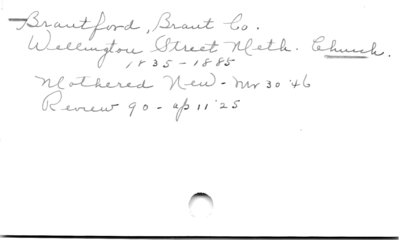 Brantford, Brant Co.
Wellington Street Meth. Church.
1835-1885
Mothered New - Mr 30 '46
Review 90 - ap 11 '25